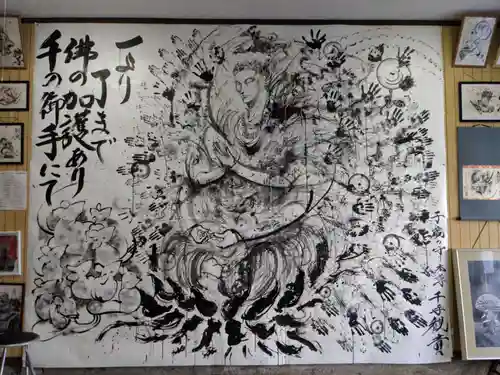 一より
了まで
佛の加護あり
千の御手にて
本尊千手観音